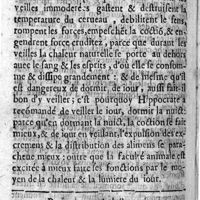 veilles immoderés gastent & destruisent la
temperature du cerueau, debilitent le sens,
rompent les forces, empeschẽt la coctiõ, & en-
gendrent force cruditez, parce que durant les
veilles la chaleur naturelle se porte au dehors
auec le sang & les esprits, d'où elle se consom-
me & dissipe grandement: & de mesme qu'il
est dangereux de dormir de iour, aussi fait-il
bon d'y veiller; c'est pourquoy Hyppocrate a
recõmandé de veiller le iour, dormir la nuict:
parce qu'en dormant la nuict, la coction se fait
mieux, & de iour en veillant l'expulsion des ex-
cremens & la distribution des alimens se para-
cheue mieux: outre que la faculté animale est
excitée à mieux faire ses fonctions par le mo-
yen de la chaleur & la lumiere du iour.